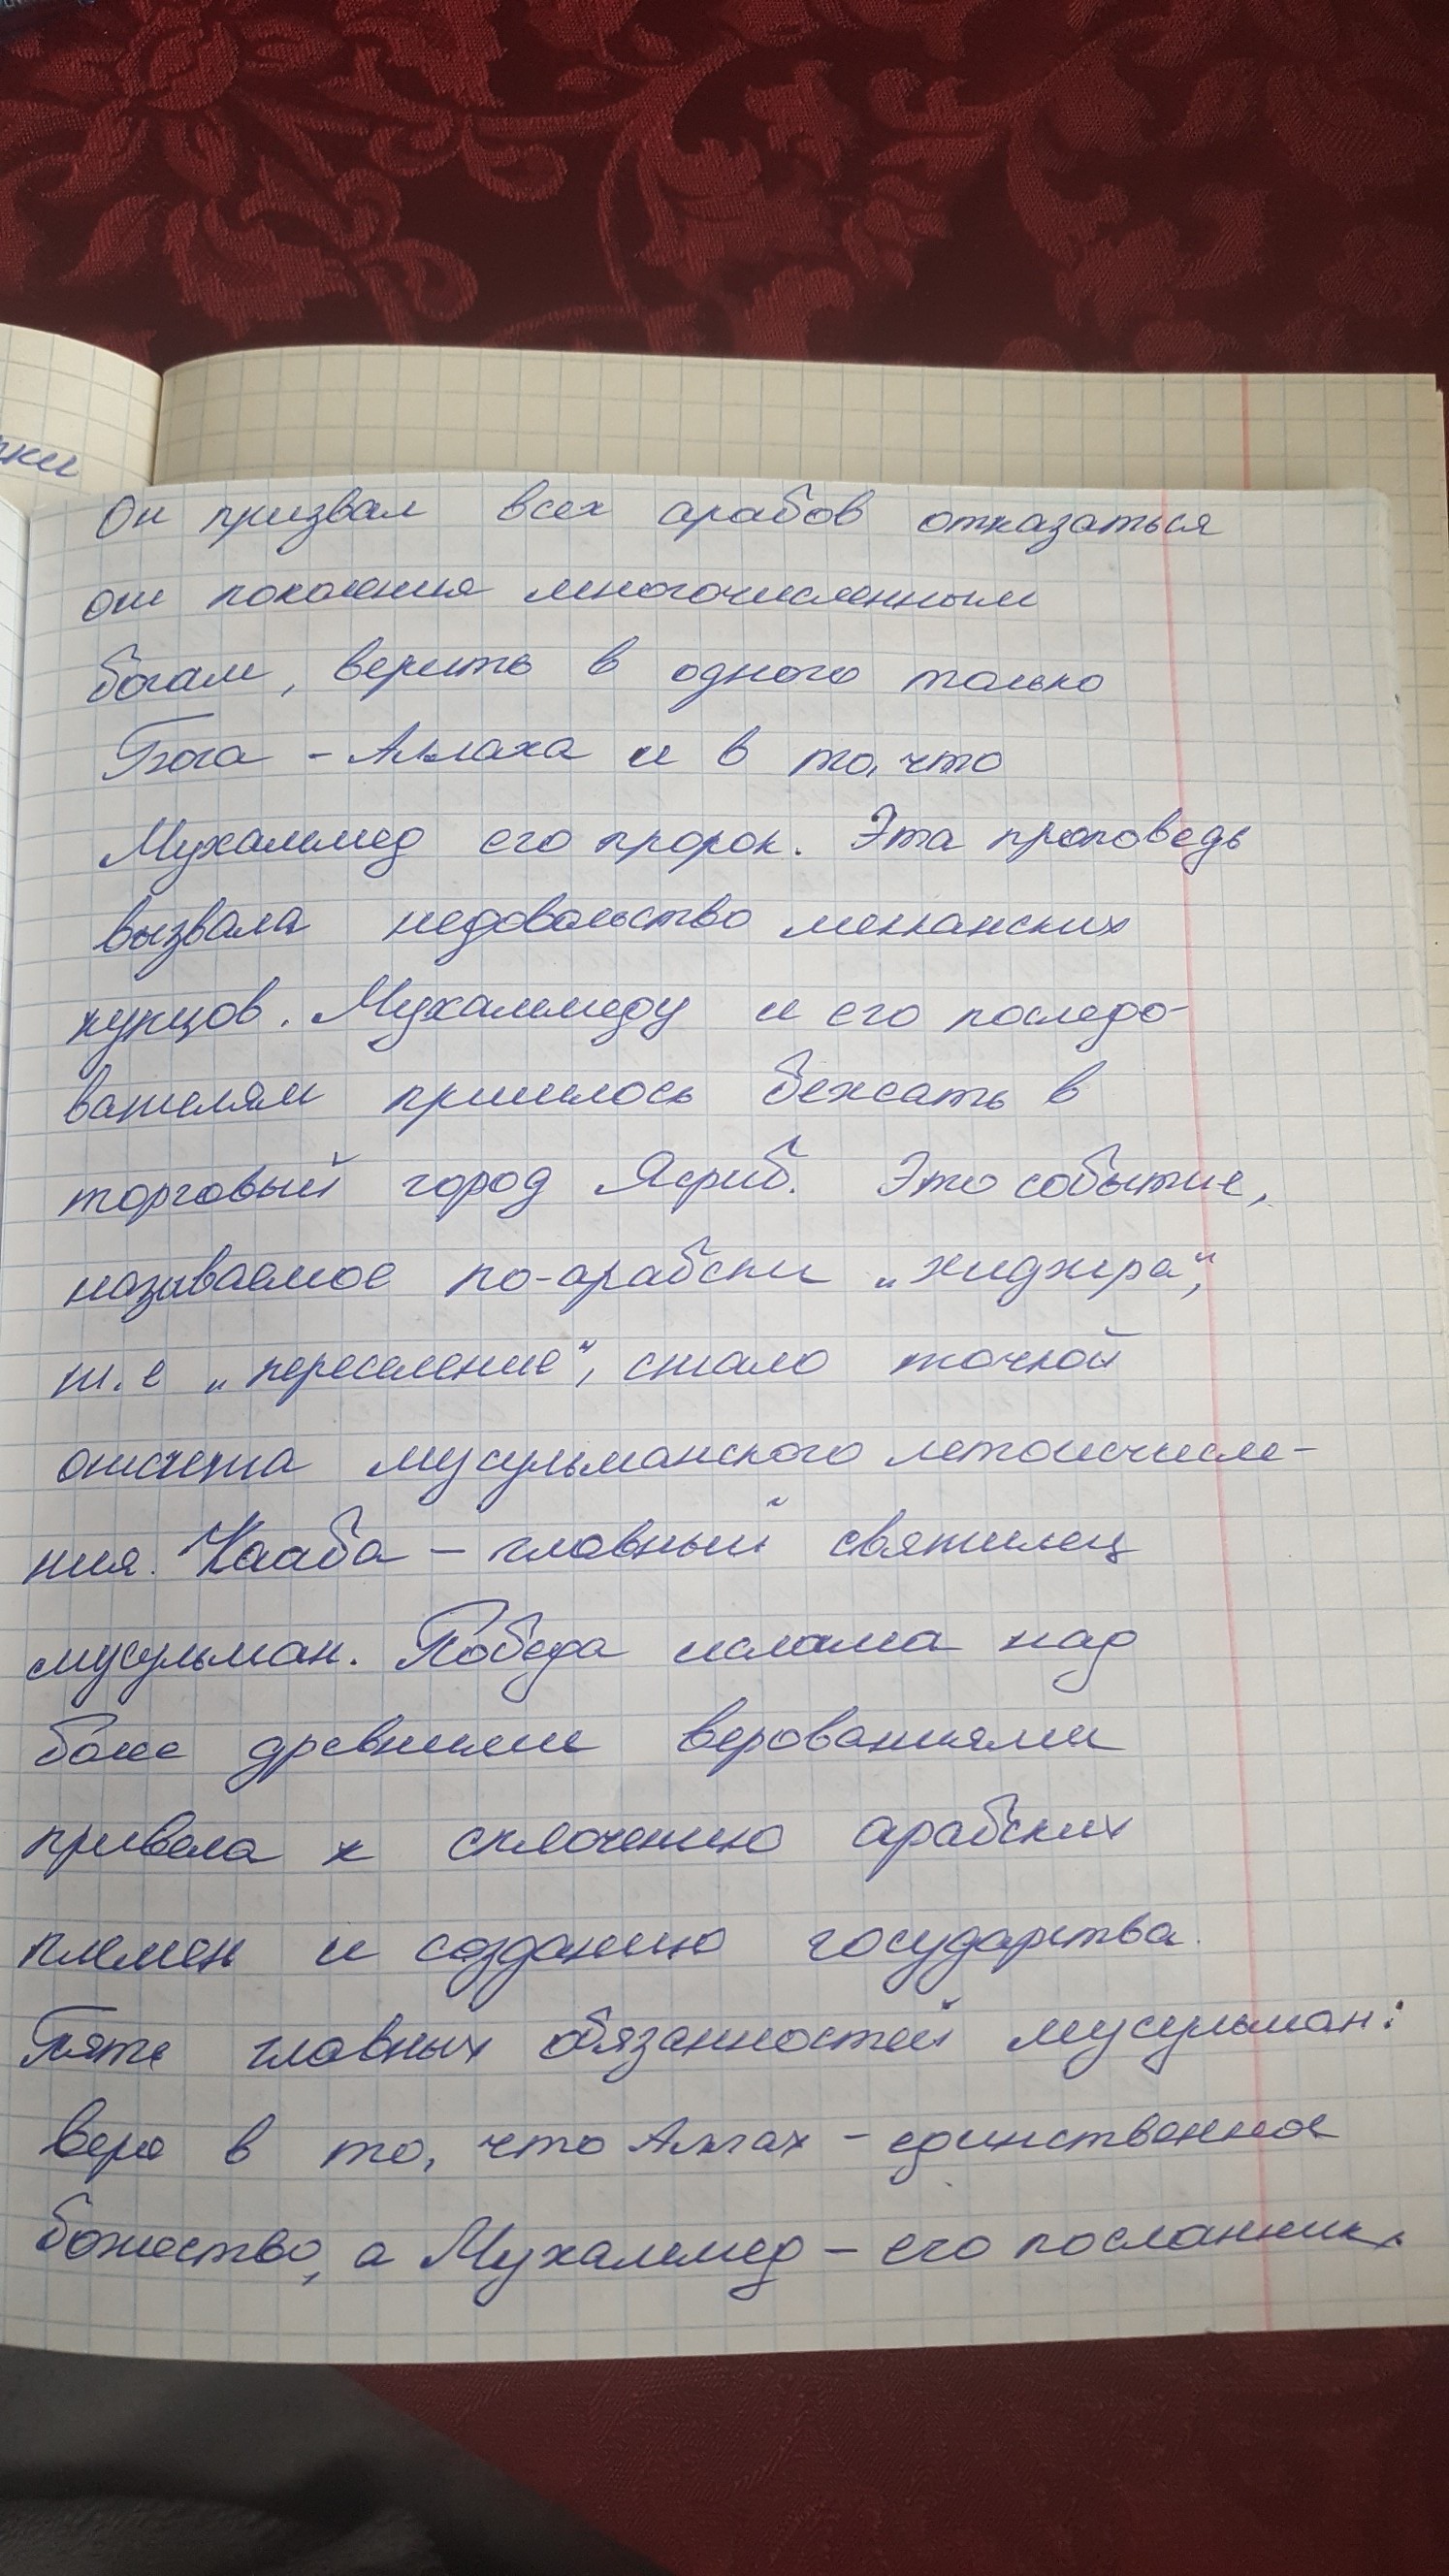 ки
Он призвал всех арабов отказаться
от поклоения многочисленным
богам, верить в одного только
Бога - Аллаха и в то, что
Мухаммед его пророк. Эта проповедь
вызвала недовольство мекканских
купцов. Мухаммеду и его последо-
вателям пришлось бежать в
торговый город Ясриб. Это событие,
называемое по-арабски „хиджра“,
т.е „переселение“, стало точкой
отсчета мусульманского летоисчисле-
ния. Кааба – главный святилец
мусульман. Победа ислама над
боле древними верованиями
привела к сплочению арабских
племен и созданию государства.
Пять главных обязанностей мусульман:
вера в то, что Аллах – единственное
божество, а Мухаммед – его посланник.